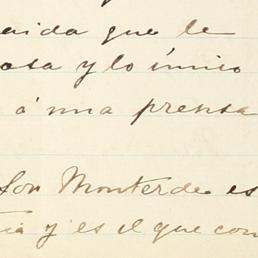 aida que le
osa y lo único
á una prensa
Son Monterde es
ia y es el que con